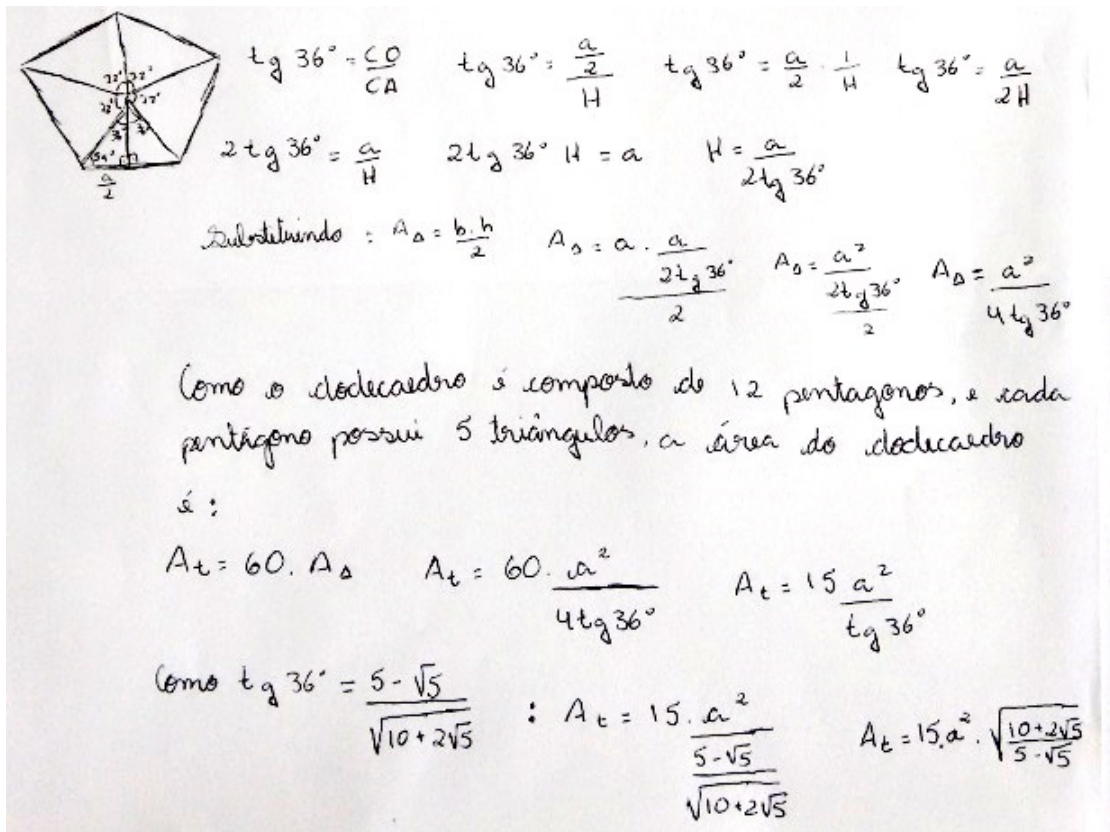 72° 72°
72° 72°
36° 36°
54°
a/2
tg 36° = CO/CA tg 36° = (a/2)/H tg 36° = a/2 · 1/H tg 36° = a/2H
2 tg 36° = a/H 2tg 36° H = a H = a/2tg 36°
Substituindo : A△ = b.h/2 A△ = (a · a/2tg 36°)/2 A△ = (a²/2tg 36°)/2 A△ = a²/4 tg 36°
Como o dodecaedro é composto de 12 pentagonos, e cada
pentágono possui 5 triângulos, a área do dodecaedro
é :
At = 60. A△ At = 60. a²/4tg 36° At = 15 a²/tg 36°
Como tg 36° = (5-√5)/√(10+2√5) : At = 15. a²/((5-√5)/√(10+2√5)) At = 15.a² . √((10+2√5)/(5-√5))